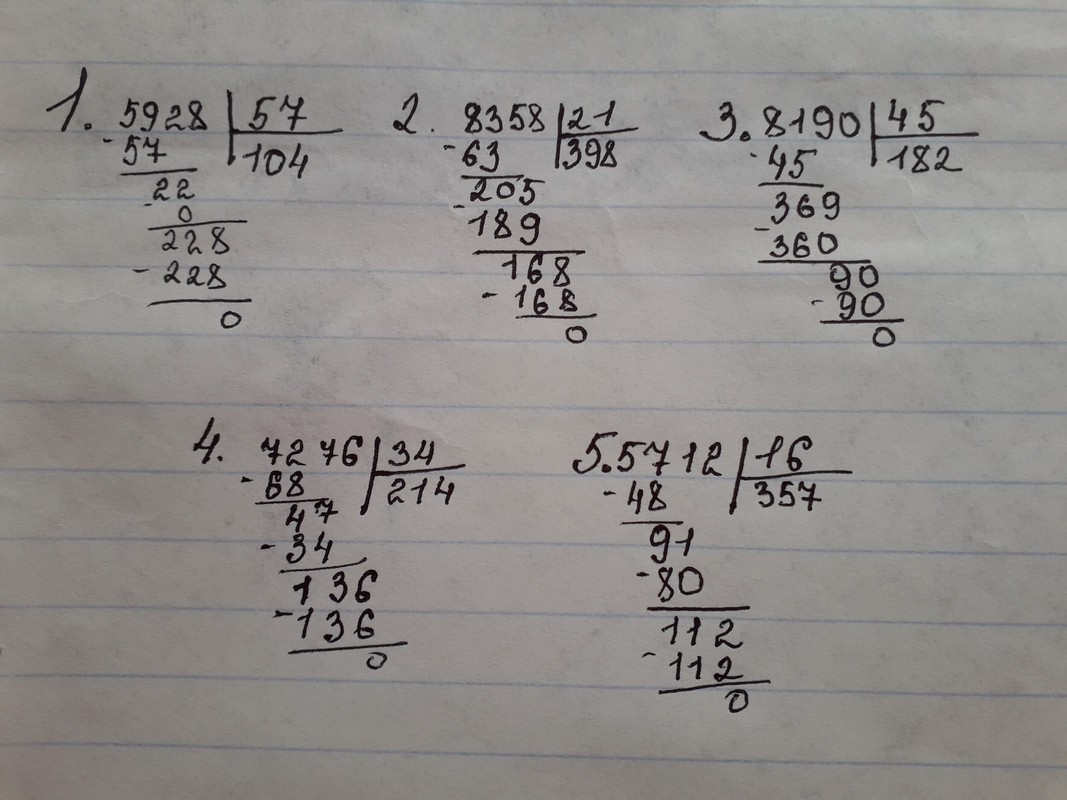 1. 5928 | 57
- 57 104
22
- 0
228
- 228
0
2. 8358 | 21
- 63 398
205
- 189
168
- 168
0
3. 8190 | 45
- 45 182
369
- 360
90
- 90
0
4. 7276 | 34
- 68 214
47
- 34
136
- 136
0
5. 5712 | 16
- 48 357
91
- 80
112
- 112
0